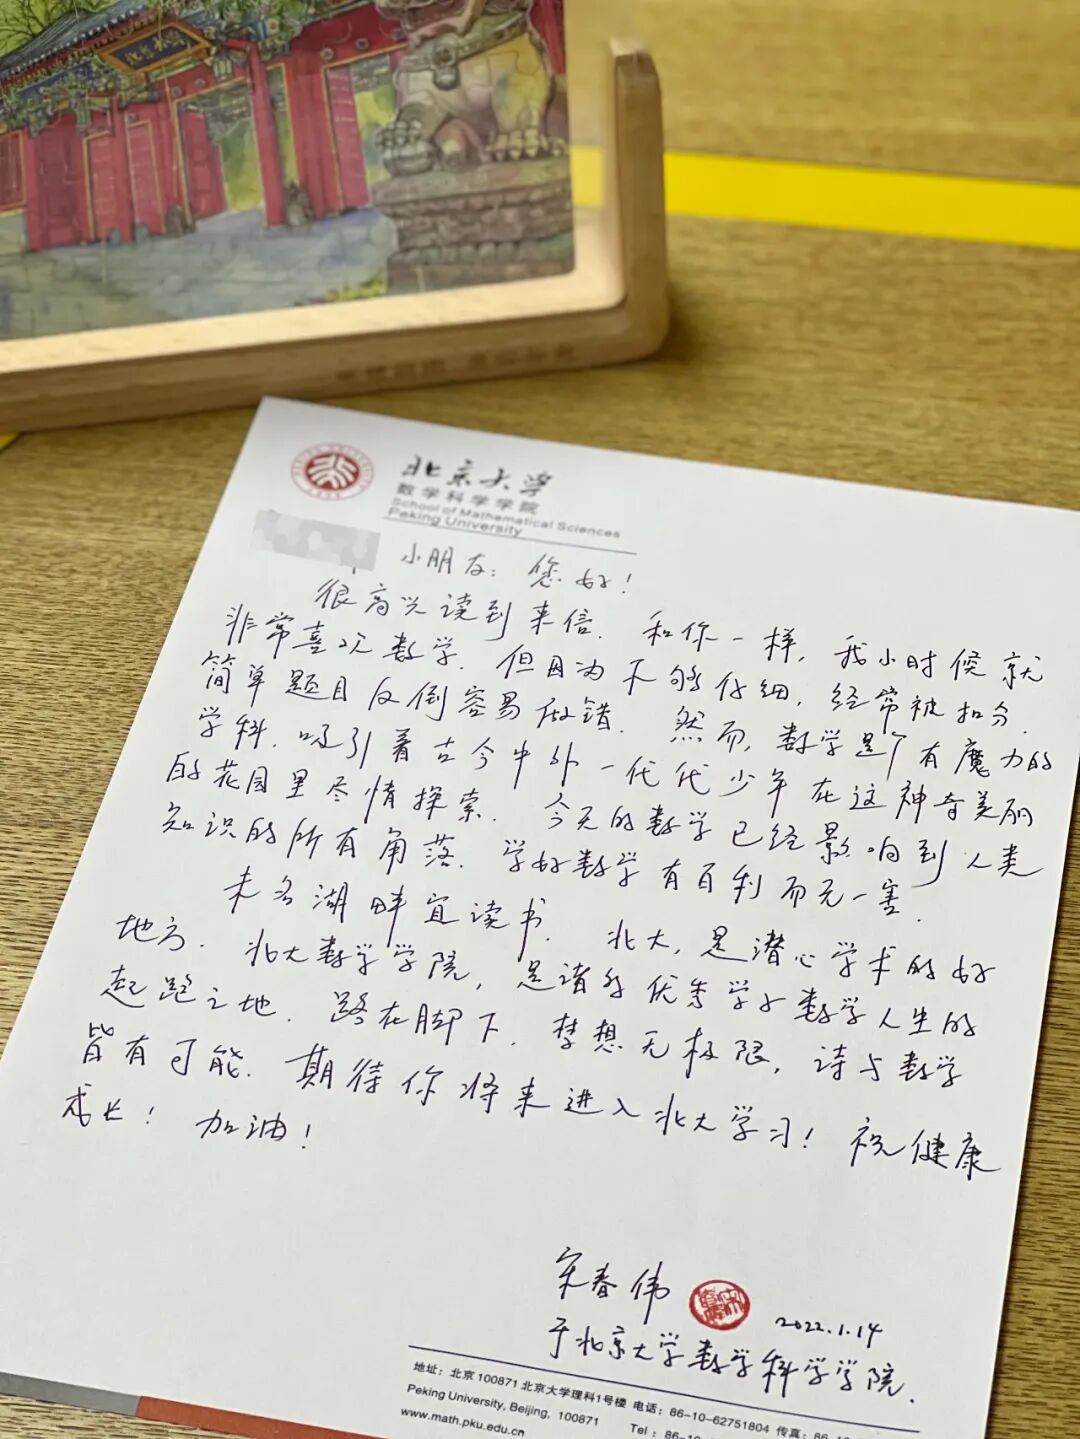 北京大学
数学科学学院
School of Mathematical Sciences
Peking University
小朋友：您好！
很高兴读到来信．和你一样，我小时候就
非常喜欢数学．但因为不够仔细，经常被扣分．
简单题目反倒容易做错．然而，数学是个有魔力的
学科．吸引着古今中外一代代少年在这神奇美丽
的花园里尽情探索．今天的数学已经影响到人类
知识的所有角落．学好数学有百利而无一害．
未名湖畔宜读书．北大，是潜心学术的好
地方．北大数学学院，是诸多优秀学子数学人生的
起跑之地．路在脚下．梦想无极限，诗与数学
皆有可能．期待你将来进入北大学习！祝健康
成长！加油！
宋春伟
2022.1.14
于北京大学数学科学学院．
地址：北京 100871 北京大学理科1号楼 电话：86-10-62751804 传真：86-10
Peking University, Beijing, 100871 Tel：86-10
www.math.pku.edu.cn